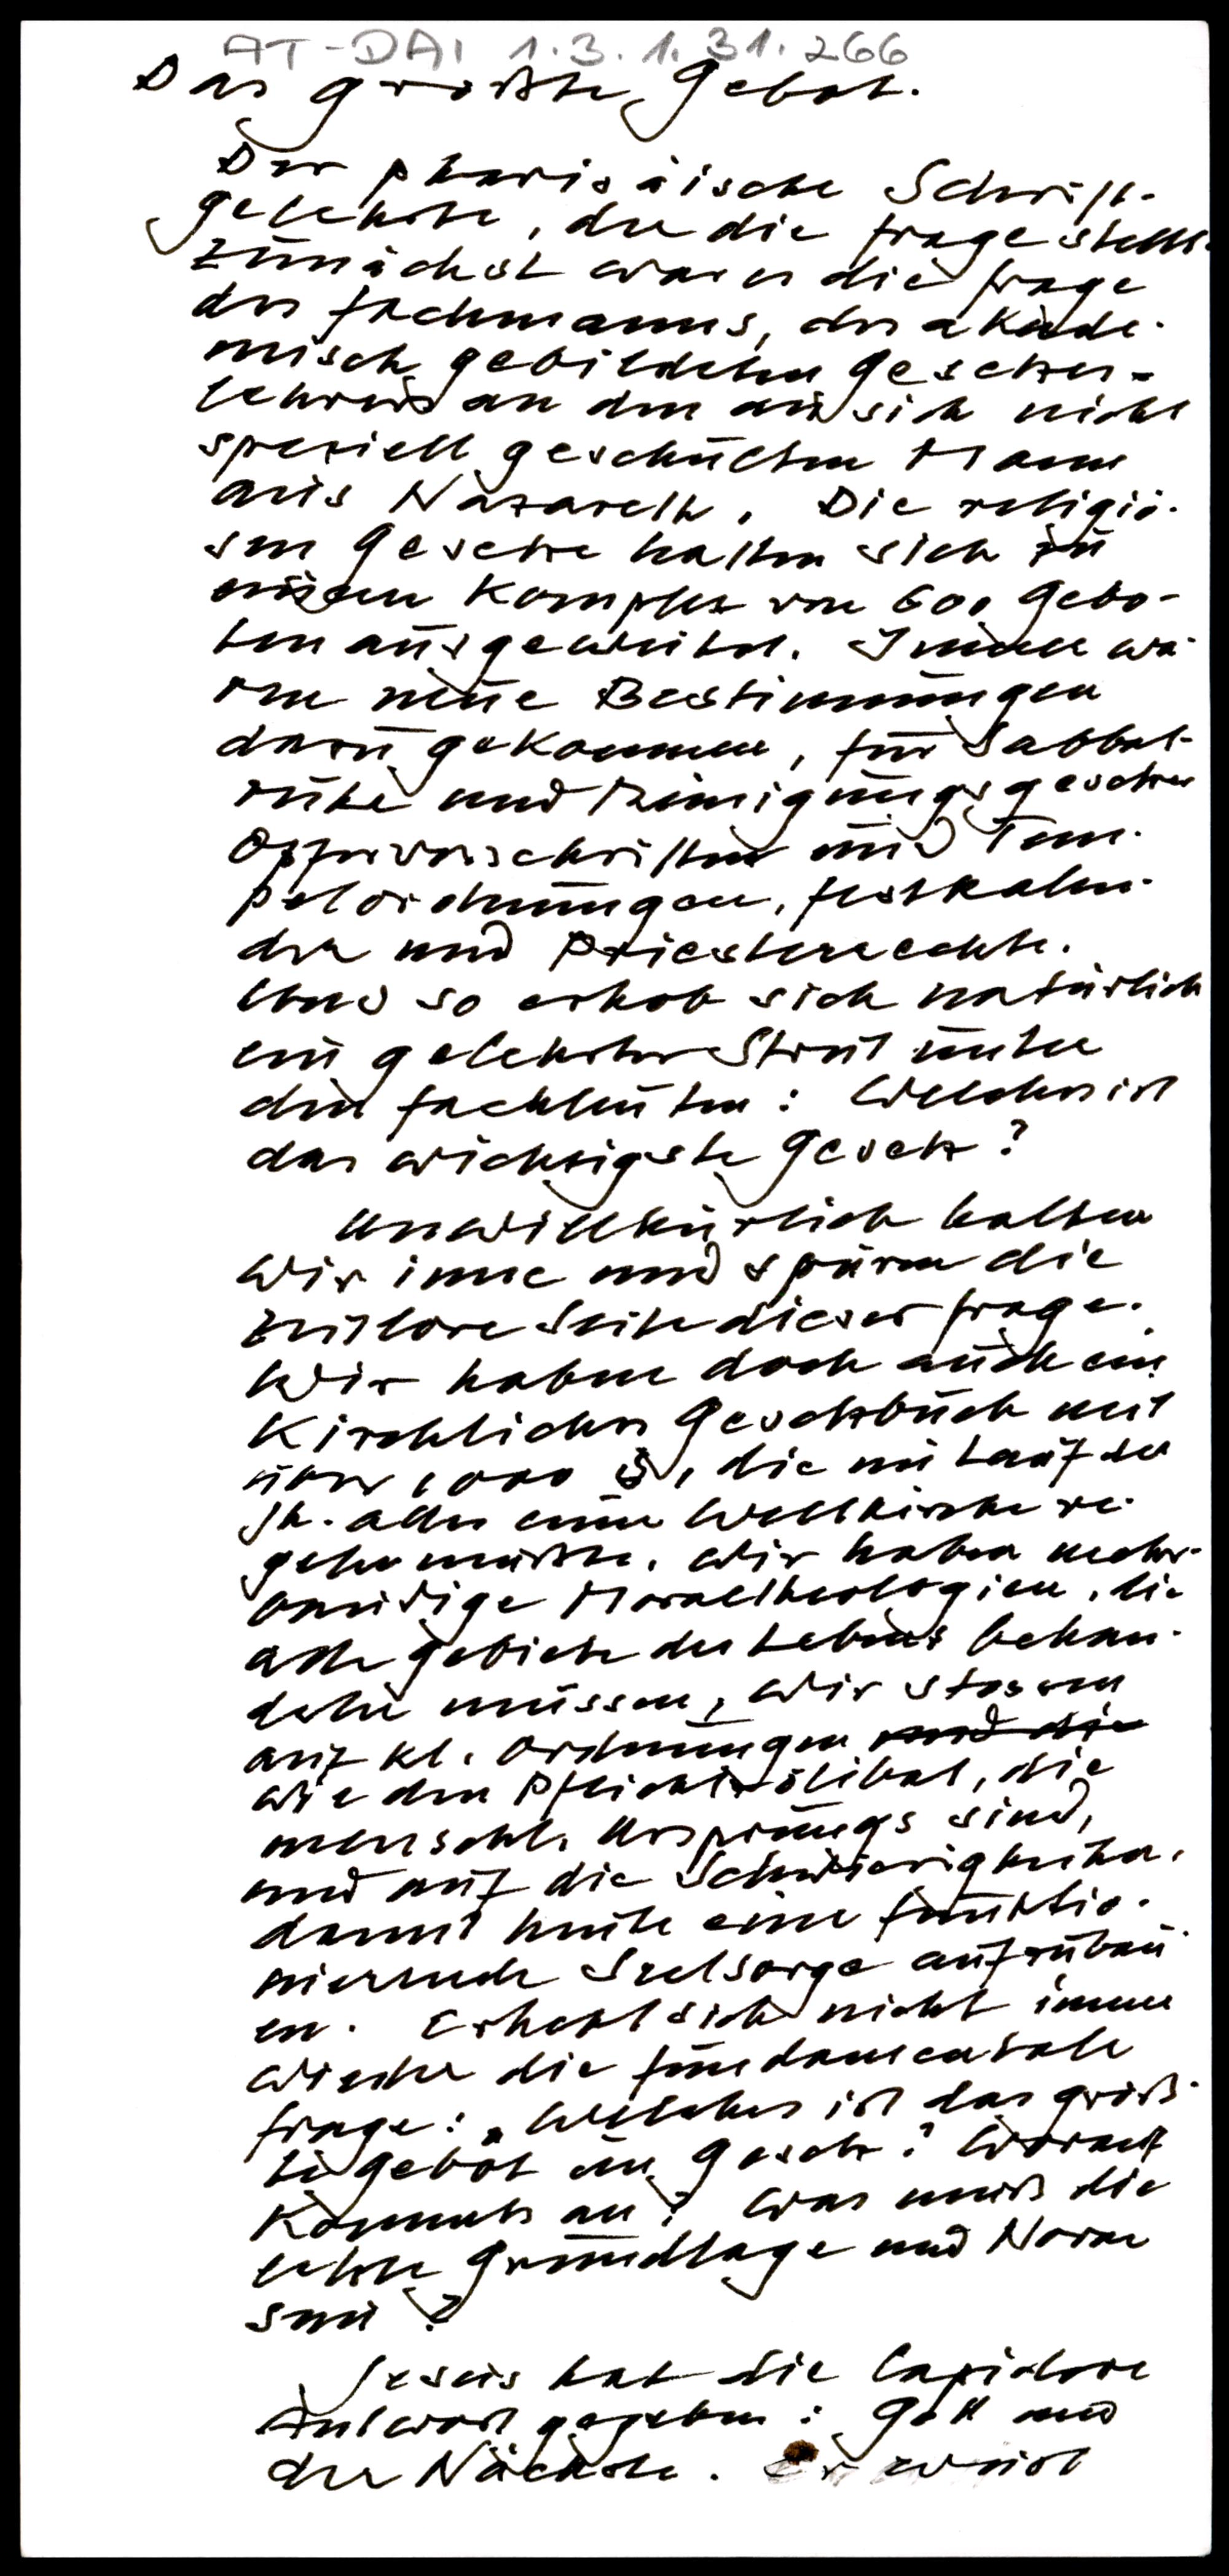 AT-DAI 1.3.1.31.266
Das größte Gebot.
Der pharisäische Schrift-
gelehrte, der die Frage stellt.
Zunächst war es die Frage
des Fachmanns, des akade-
misch gebildeten Gesetzes-
lehrers an den an sich nicht
speziell geschulten Mann
aus Nazareth. Die religiö-
sen Gesetze hatten sich zu
einem Komplex von 600 Gebo-
ten ausgeweitet. Immer wa-
ren neue Bestimmungen
dazu gekommen, für Sabbat-
ruhe und Reinigungsgesetze
Opfervorschriften und Tem-
pelordnungen, Festkalen-
der und Priesterrechte.
Und so erhob sich natürlich
ein gelehrter Streit unter
den Fachleuten: Welches ist
das wichtigste Gesetz?
Unwillkürlich halten
wir inne und spüren die
zeitlose Seite dieser Frage.
Wir haben doch auch ein
Kirchliches Gesetzbuch mit
über 1000 §, die im Lauf der
Jh. alles einer Weltkirche re-
geln mußte. Wir haben mehr-
bändige Moraltheologien, die
alle Gebiete des Lebens behan-
deln müssen, wir stossen
auf kl. Ordnungen und die
wie den Pflichtzölibat, die
menschl. Ursprungs sind,
und auf die Schwierigkeiten,
damit heute eine funktio-
nierende Seelsorge aufzubau-
en. Erhebt sich nicht immer
wieder die fundamentale
Frage: „Welches ist das größ-
te Gebot im Gesetz? Worauf
kommts an? Was muß die
letzte Grundlage und Norm
sein?
Jesus hat die lapidare
Antwort gegeben: Gott und
der Nächste. Er weist